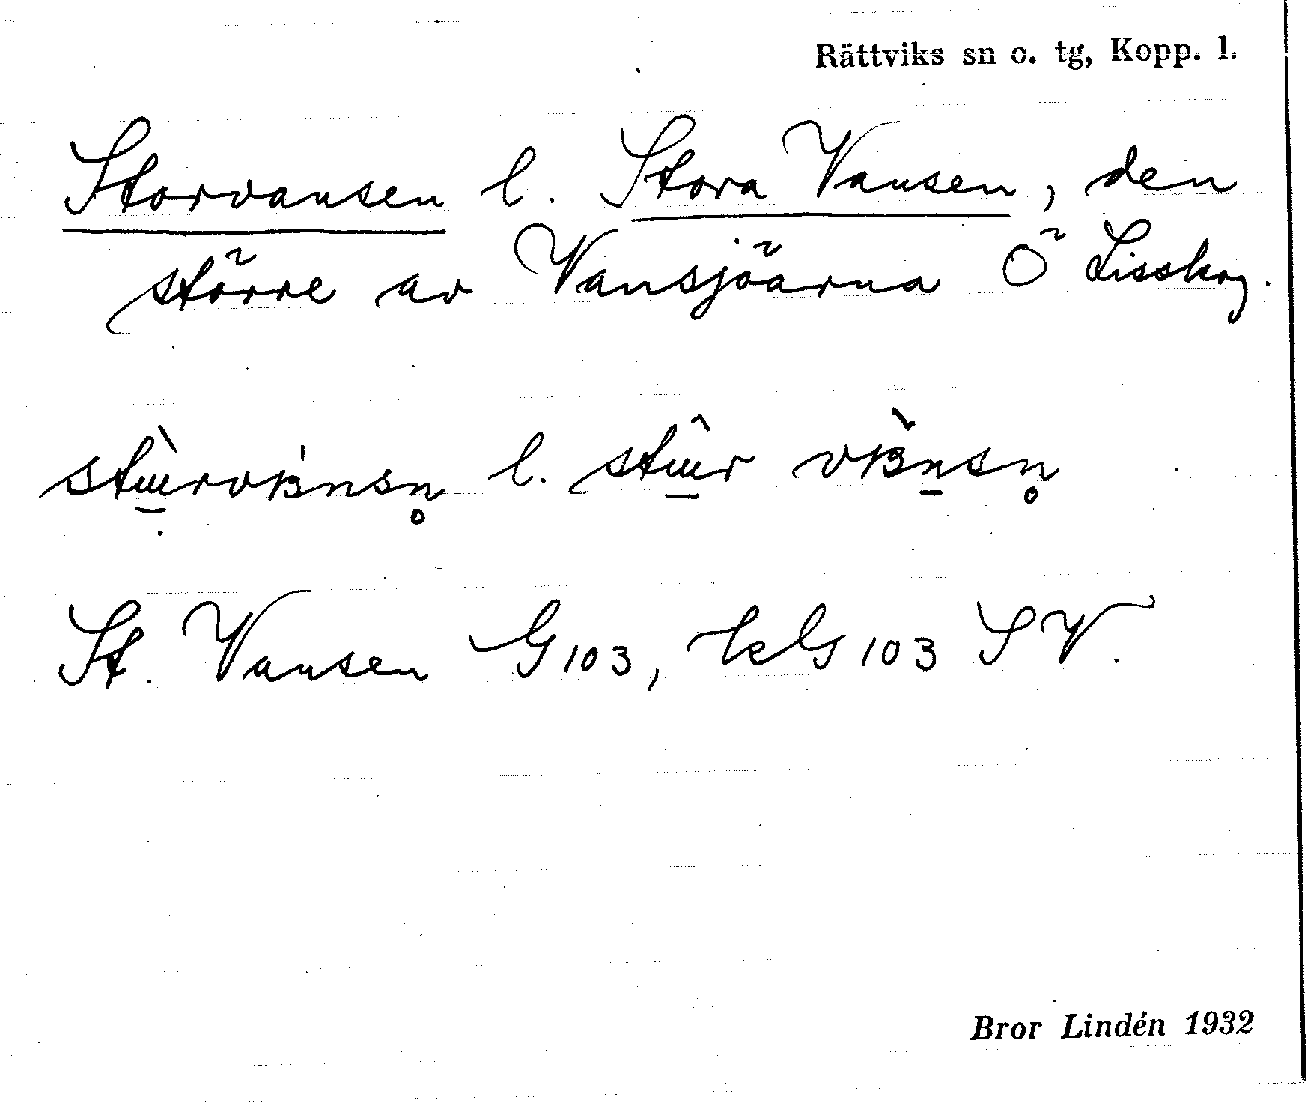 Rättviks sn o. tg, Kopp. l.
Storvansen l. Stora Vansen, den
större av Vansjöarna Ö Lisskog.
l.
St. Vansen G103, kG 103 SV.
Bror Lindén 1932